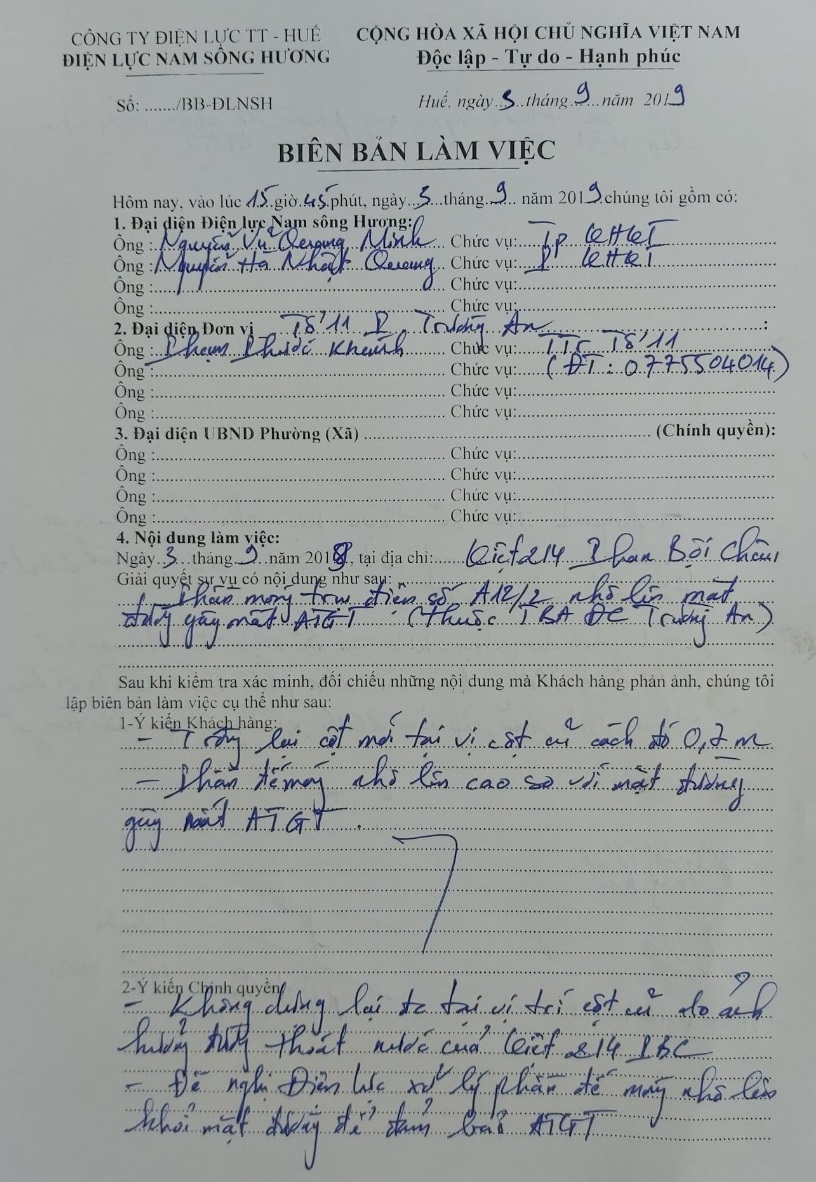 CÔNG TY ĐIỆN LỰC TT - HUẾ
ĐIỆN LỰC NAM SÔNG HƯƠNG
CỘNG HÒA XÃ HỘI CHỦ NGHĨA VIỆT NAM
Độc lập - Tự do - Hạnh phúc
Số: ......./BB-ĐLNSH
Huế, ngày 3 tháng 9 năm 2019
BIÊN BẢN LÀM VIỆC
Hôm nay, vào lúc 15 giờ 45 phút, ngày 3 tháng 9 năm 2019 chúng tôi gồm có:
1. Đại diện Điện lực Nam sông Hương:
Ông : Nguyễn Vũ Quang Minh Chức vụ: TP KHKT
Ông : Nguyễn Hà Nhật Quang Chức vụ: P KHKT
Ông : Chức vụ:
Ông : Chức vụ:
2. Đại diện Đơn vị Tổ 11 P. Trường An :
Ông : Phạm Phước Khánh Chức vụ: TTr Tổ 11
Ông : Chức vụ: (ĐT: 0775504014)
Ông : Chức vụ:
Ông : Chức vụ:
3. Đại diện UBND Phường (Xã) (Chính quyền):
Ông : Chức vụ:
Ông : Chức vụ:
Ông : Chức vụ:
Ông : Chức vụ:
4. Nội dung làm việc:
Ngày 3 tháng 9 năm 2018, tại địa chỉ: Kiệt 214 Phan Bội Châu,
Giải quyết sự vụ có nội dung như sau:
Phần móng trụ điện số A12/2 nhô lên mặt
đường gây mất ATGT (thuộc TBA ĐC Trường An)
Sau khi kiểm tra xác minh, đối chiếu những nội dung mà Khách hàng phản ánh, chúng tôi
lập biên bản làm việc cụ thể như sau:
1-Ý kiến Khách hàng:
- Trồng lại cột mới tại vị cột cũ cách đó 0,7 m
- Phần đế móng nhô lên cao so với mặt đường
gây mất ATGT.
2-Ý kiến Chính quyền
- Không dựng lại tại vị trí cột cũ do ảnh
hưởng đường thoát nước của Kiệt 214 PBC
- Đề nghị Điện lực xử lý phần đế móng nhô lên
khỏi mặt đường để đảm bảo ATGT